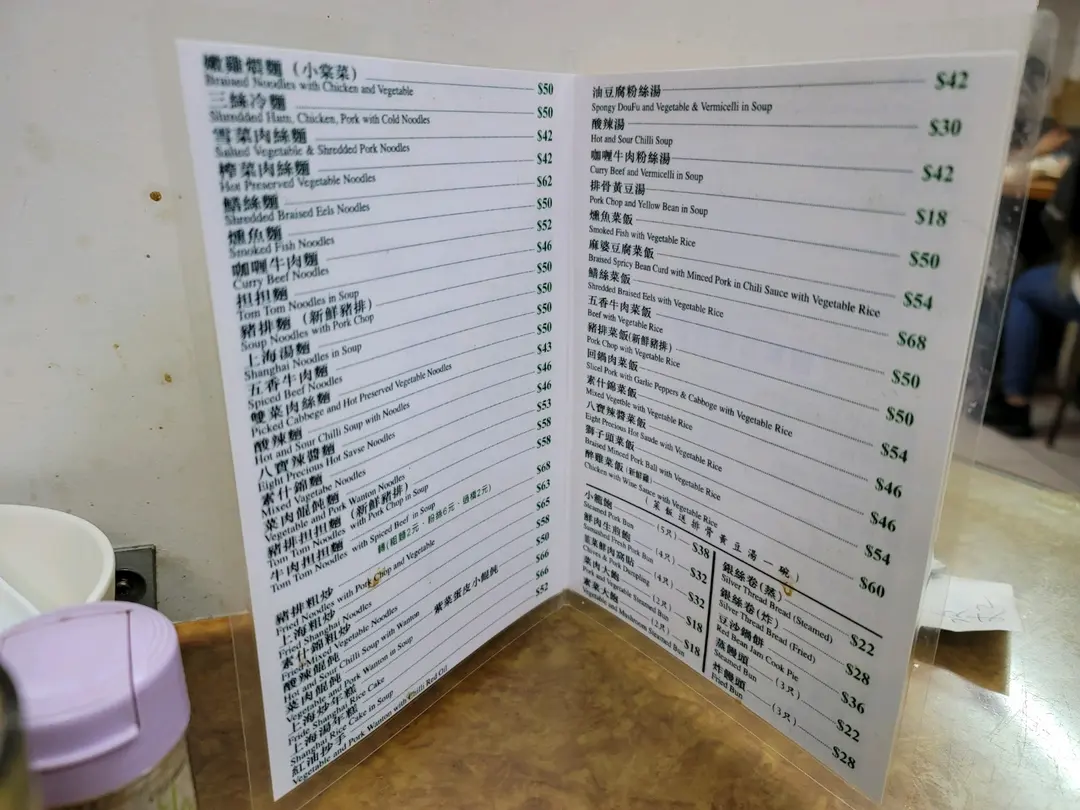 嫩雞煨麵（小棠菜） $50
Braised Noodles with Chicken and Vegetable
三絲冷麵 $50
Shredded Ham, Chicken, Pork with Cold Noodles
雪菜肉絲麵 $42
Salted Vegetable & Shredded Pork Noodles
榨菜肉絲麵 $42
Hot Preserved Vegetable Noodles
鱔絲麵 $62
Shredded Braised Eels Noodles
燻魚麵 $50
Smoked Fish Noodles
咖喱牛肉麵 $52
Curry Beef Noodles
担担麵 $46
Tom Tom Noodles in Soup
豬排麵（新鮮豬排） $50
Soup Noodles with Pork Chop
上海湯麵 $50
Shanghai Noodles in Soup
五香牛肉麵 $50
Spiced Beef Noodles
雙菜肉絲麵 $43
Picked Cabbege and Hot Preserved Vegetable Noodles
酸辣麵 $46
Hot and Sour Chilli Soup with Noodles
八寶辣醬麵 $46
Eight Precious Hot Savse Noodles
素什錦麵 $53
Mixed Vegetabe Noodles
菜肉餛飩麵 $58
Vegetable and Pork Wanton Noodles
豬排担担麵（新鮮豬排） $58
Tom Tom Noodles with Pork Chop in Soup
牛肉担担麵 $68
Tom Tom Noodles with Spiced Beef in Soup
轉(粗麵2元、粉絲6元、過橋2元)
豬排粗炒 $63
Fried Noodles with Pork Chop and Vegetable
上海粗炒 $65
Fried Shanghai Noodles
素什錦粗炒 $58
Fried Mixed Vegetable Noodles
酸辣餛飩 $50
Hot and Sour Chilli Soup with Wanton
菜肉餛飩 紫菜蛋皮小餛飩 $66
Vegetable and Pork Wanton in Soup
上海炒年糕 $66
Fride Shanghai Rice Cake
上海湯年糕 $52
Shanghai Rice Cake in Soup
紅油抄手
Vegetable and Pork Wanton with Chilli Red Oil
油豆腐粉絲湯 $42
Spongy DouFu and Vegetable & Vermicelli in Soup
酸辣湯 $30
Hot and Sour Chilli Soup
咖喱牛肉粉絲湯 $42
Curry Beef and Vermicelli in Soup
排骨黃豆湯 $18
Pork Chop and Yellow Bean in Soup
燻魚菜飯 $50
Smoked Fish with Vegetable Rice
麻婆豆腐菜飯 $54
Braised Spicy Bean Curd with Minced Pork in Chili Sauce with Vegetable Rice
鱔絲菜飯 $68
Shredded Braised Eels with Vegetable Rice
五香牛肉菜飯 $50
Beef with Vegetable Rice
豬排菜飯(新鮮豬排) $50
Pork Chop with Vegetable Rice
回鍋肉菜飯 $54
Sliced Pork with Garlic Peppers & Cabboge with Vegetable Rice
素什錦菜飯 $46
Mixed Vegetble with Vegetable Rice
八寶辣醬菜飯 $46
Eight Precious Hot Saude with Vegetable Rice
獅子頭菜飯 $54
Braised Minced Pork Ball with Vegetable Rice
醉雞菜飯(新鮮雞) $60
Chicken with Wine Sauce with Vegetable Rice
(菜飯送排骨黃豆湯一碗)
小籠飽 (5只) $38
Steamed Pork Bun
鮮肉生煎飽 (4只) $32
Sautashed Fresh Pork Bun
韮菜鮮肉窩貼 (4只) $32
Chives & Pork Dumpling
菜肉大飽 (2只) $18
Pork and Vegetable Steamed Bun
素菜大飽 (2只) $18
Vegetable and Mushroom Steamed Bun
銀絲卷(蒸) $22
Silver Thread Bread (Steamed)
銀絲卷(炸) $28
Silver Thread Bread (Fried)
豆沙鍋餅 $36
Red Bean Jam Cook Pie
蒸饅頭 (3只) $22
Steamed Bun
炸饅頭 (3只) $28
Fried Bun